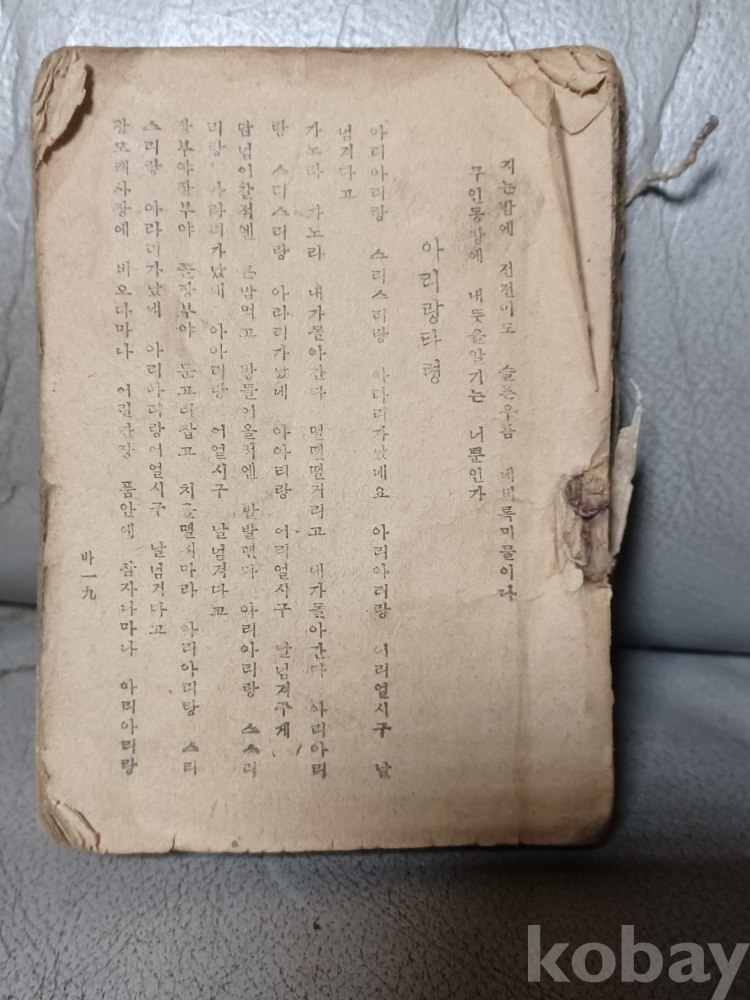 지는밤에 진전이도 슬픈우름 네비록미물이다
무인동방에 내뜻을알기는 너뿐인가
아리랑타령
아리아리랑 스리스리랑 아라리가났네요 아리아리랑 어리얼시구 날
넘겨다고
가노라 가노라 내가돌아간다 떨떨거리고 내가돌아간다 아리아리
랑 스리스리랑 아라리가났네 아아리랑 어리얼시구 날넘겨주게
담넘이갈적엔 큰맘먹고 방들어올적엔 발발떤다 아리아리랑 스스리
리랑 아라리가났네 아아리랑 어얼시구 날넘겨다고
장부야장부야 졸장부야 문고리잡고 치를떨지마라 아리아리랑 스리
스리랑 아라리가났네 아리아리랑어얼시구 날넘겨다고
강모래사장에 비오다마나 어린간장 품안에 잠자다마나 아리아리랑
바一九
kobay